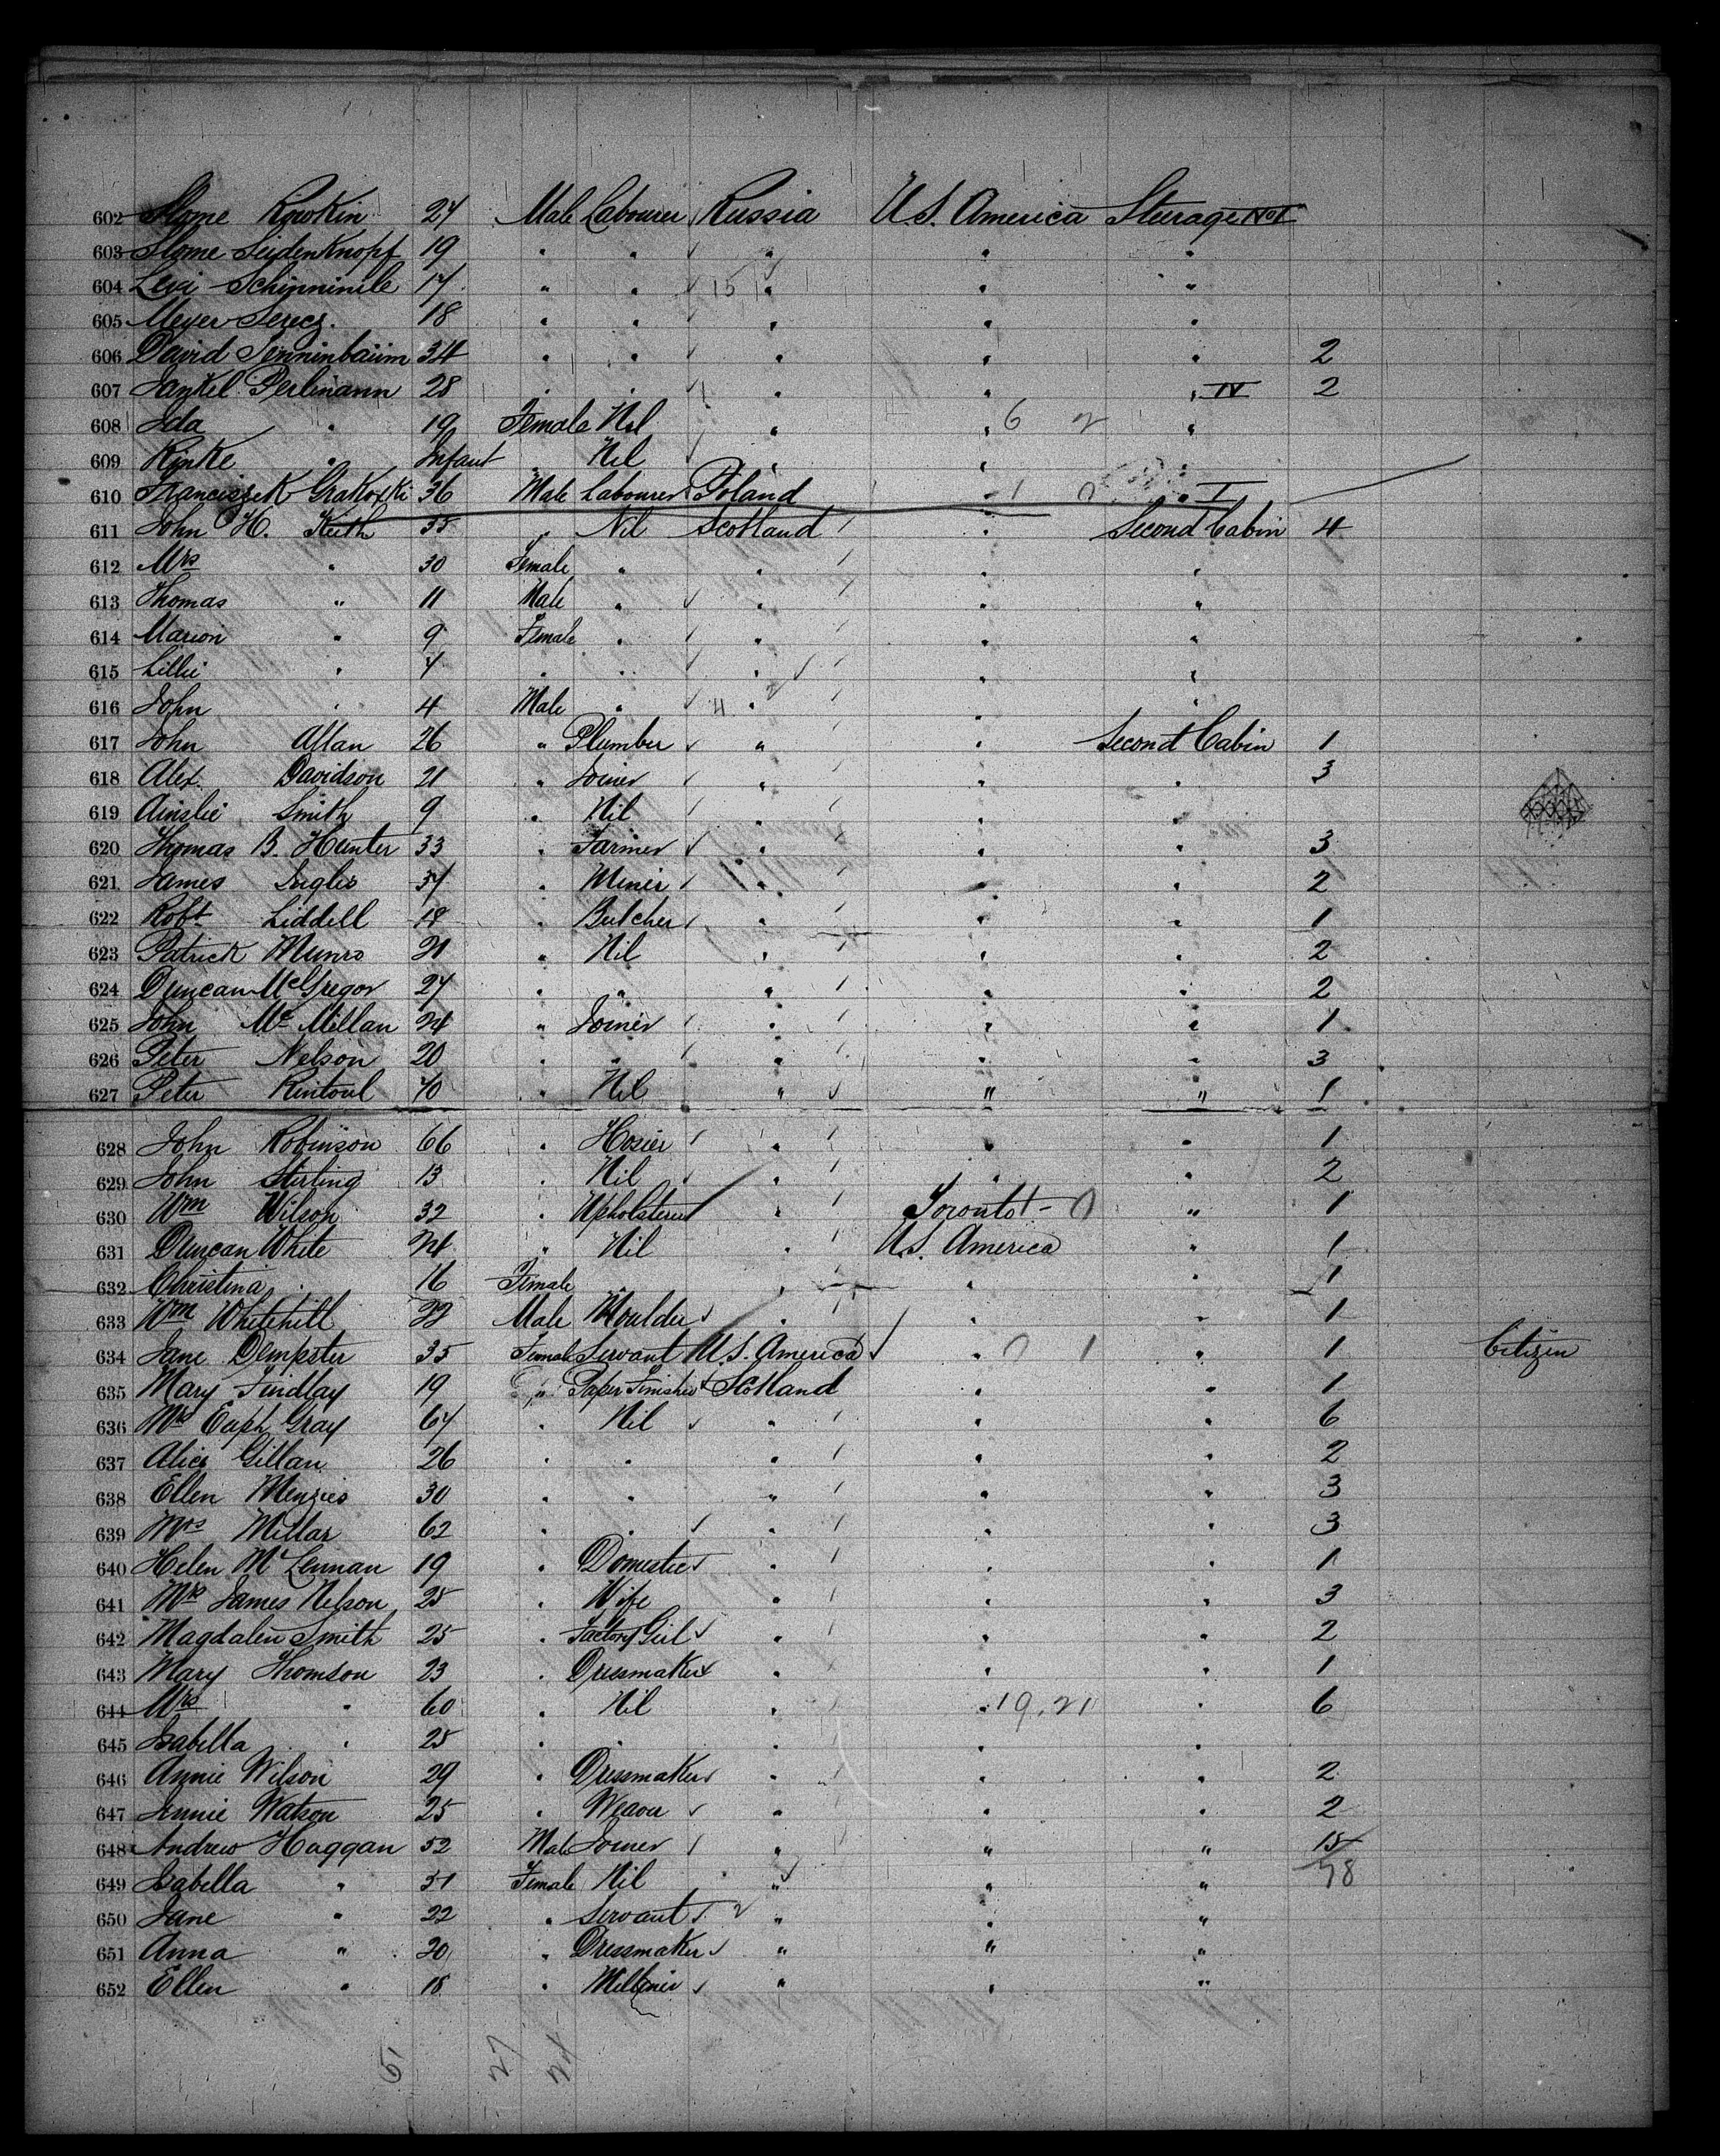 602 Slome Rowkin 24 Male Labourer Russia U.S. America Steerage
603 Slome Seidenknopf 19 " " " " "
604 Levi Schinninile 17 " " 15 " " "
605 Meyer 18 " " " " "
606 David 34 " " " " " 2
607 Jankel Perlmann 28 " " " " " IV 2
608 Ida " 19 Female Nil " " 6 2 "
609 " Infant " Nil " " "
610 Franciszek 36 Male Labourer Poland " 1 0 " I
611 John H. Keith 35 " Nil Scotland " Second Cabin 4
612 Mrs " 30 Female " " " "
613 Thomas " 11 Male " " " "
614 Marion " 9 Female " " " "
615 Lillie " 7 " " " " "
616 John " 4 Male " 4 " " "
617 John Allan 26 " Plumber " " Second Cabin 1
618 Alex. Davidson 21 " Joiner " " " 3
619 Ainslie Smith 9 " Nil " " "
620 Thomas B. Hunter 33 " Farmer " " " 3
621 James Inglis 37 " Miner " " " 2
622 Robt Liddell 18 " Butcher " " " 1
623 Patrick Munro 21 " Nil " " " 2
624 Duncan McGregor 27 " " " " " 2
625 John McMillan 24 " Joiner " " " 1
626 Peter Nelson 20 " " " " " 3
627 Peter Rintoul 70 " Nil " " " 1
628 John Robinson 66 " Hosier " " " 1
629 John Stirling 13 " Nil " " " 2
630 Wm Wilson 32 " Upholsterer " Toronto 1 - 0 " 1
631 Duncan White 24 " Nil " U.S. America " 1
632 Christina " 16 Female " " " " 1
633 Wm Whitehill 22 Male Moulder " " " 1
634 Jane Dempster 35 Female Servant U.S. America " 0 1 " 1 Citizen
635 Mary Findlay 19 " Paper Finisher Scotland " " 1
636 Mrs Euph Gray 64 " Nil " " " 6
637 Alice Gillan 26 " " " " " 2
638 Ellen Menzies 30 " " " " " 3
639 Mrs Millar 62 " " " " " 3
640 Helen McLennan 19 " Domestic " " " 1
641 Mrs James Nelson 25 " Wife " " " 3
642 Magdalen Smith 25 " Factory Girl " " " 2
643 Mary Thomson 23 " Dressmaker " " " 1
644 Mrs " 60 " Nil " " 19.21 " 6
645 Isabella " 25 " " " " "
646 Annie Wilson 29 " Dressmaker " " " 2
647 Jennie Watson 25 " Weaver " " " 2
648 Andrew Haggan 52 Male Joiner " " " 15
649 Isabella " 51 Female Nil " " " 78
650 Jane " 22 " Servant 2 " " "
651 Anna " 20 " Dressmaker " " "
652 Ellen " 18 " Milliner " " "
51 27 24